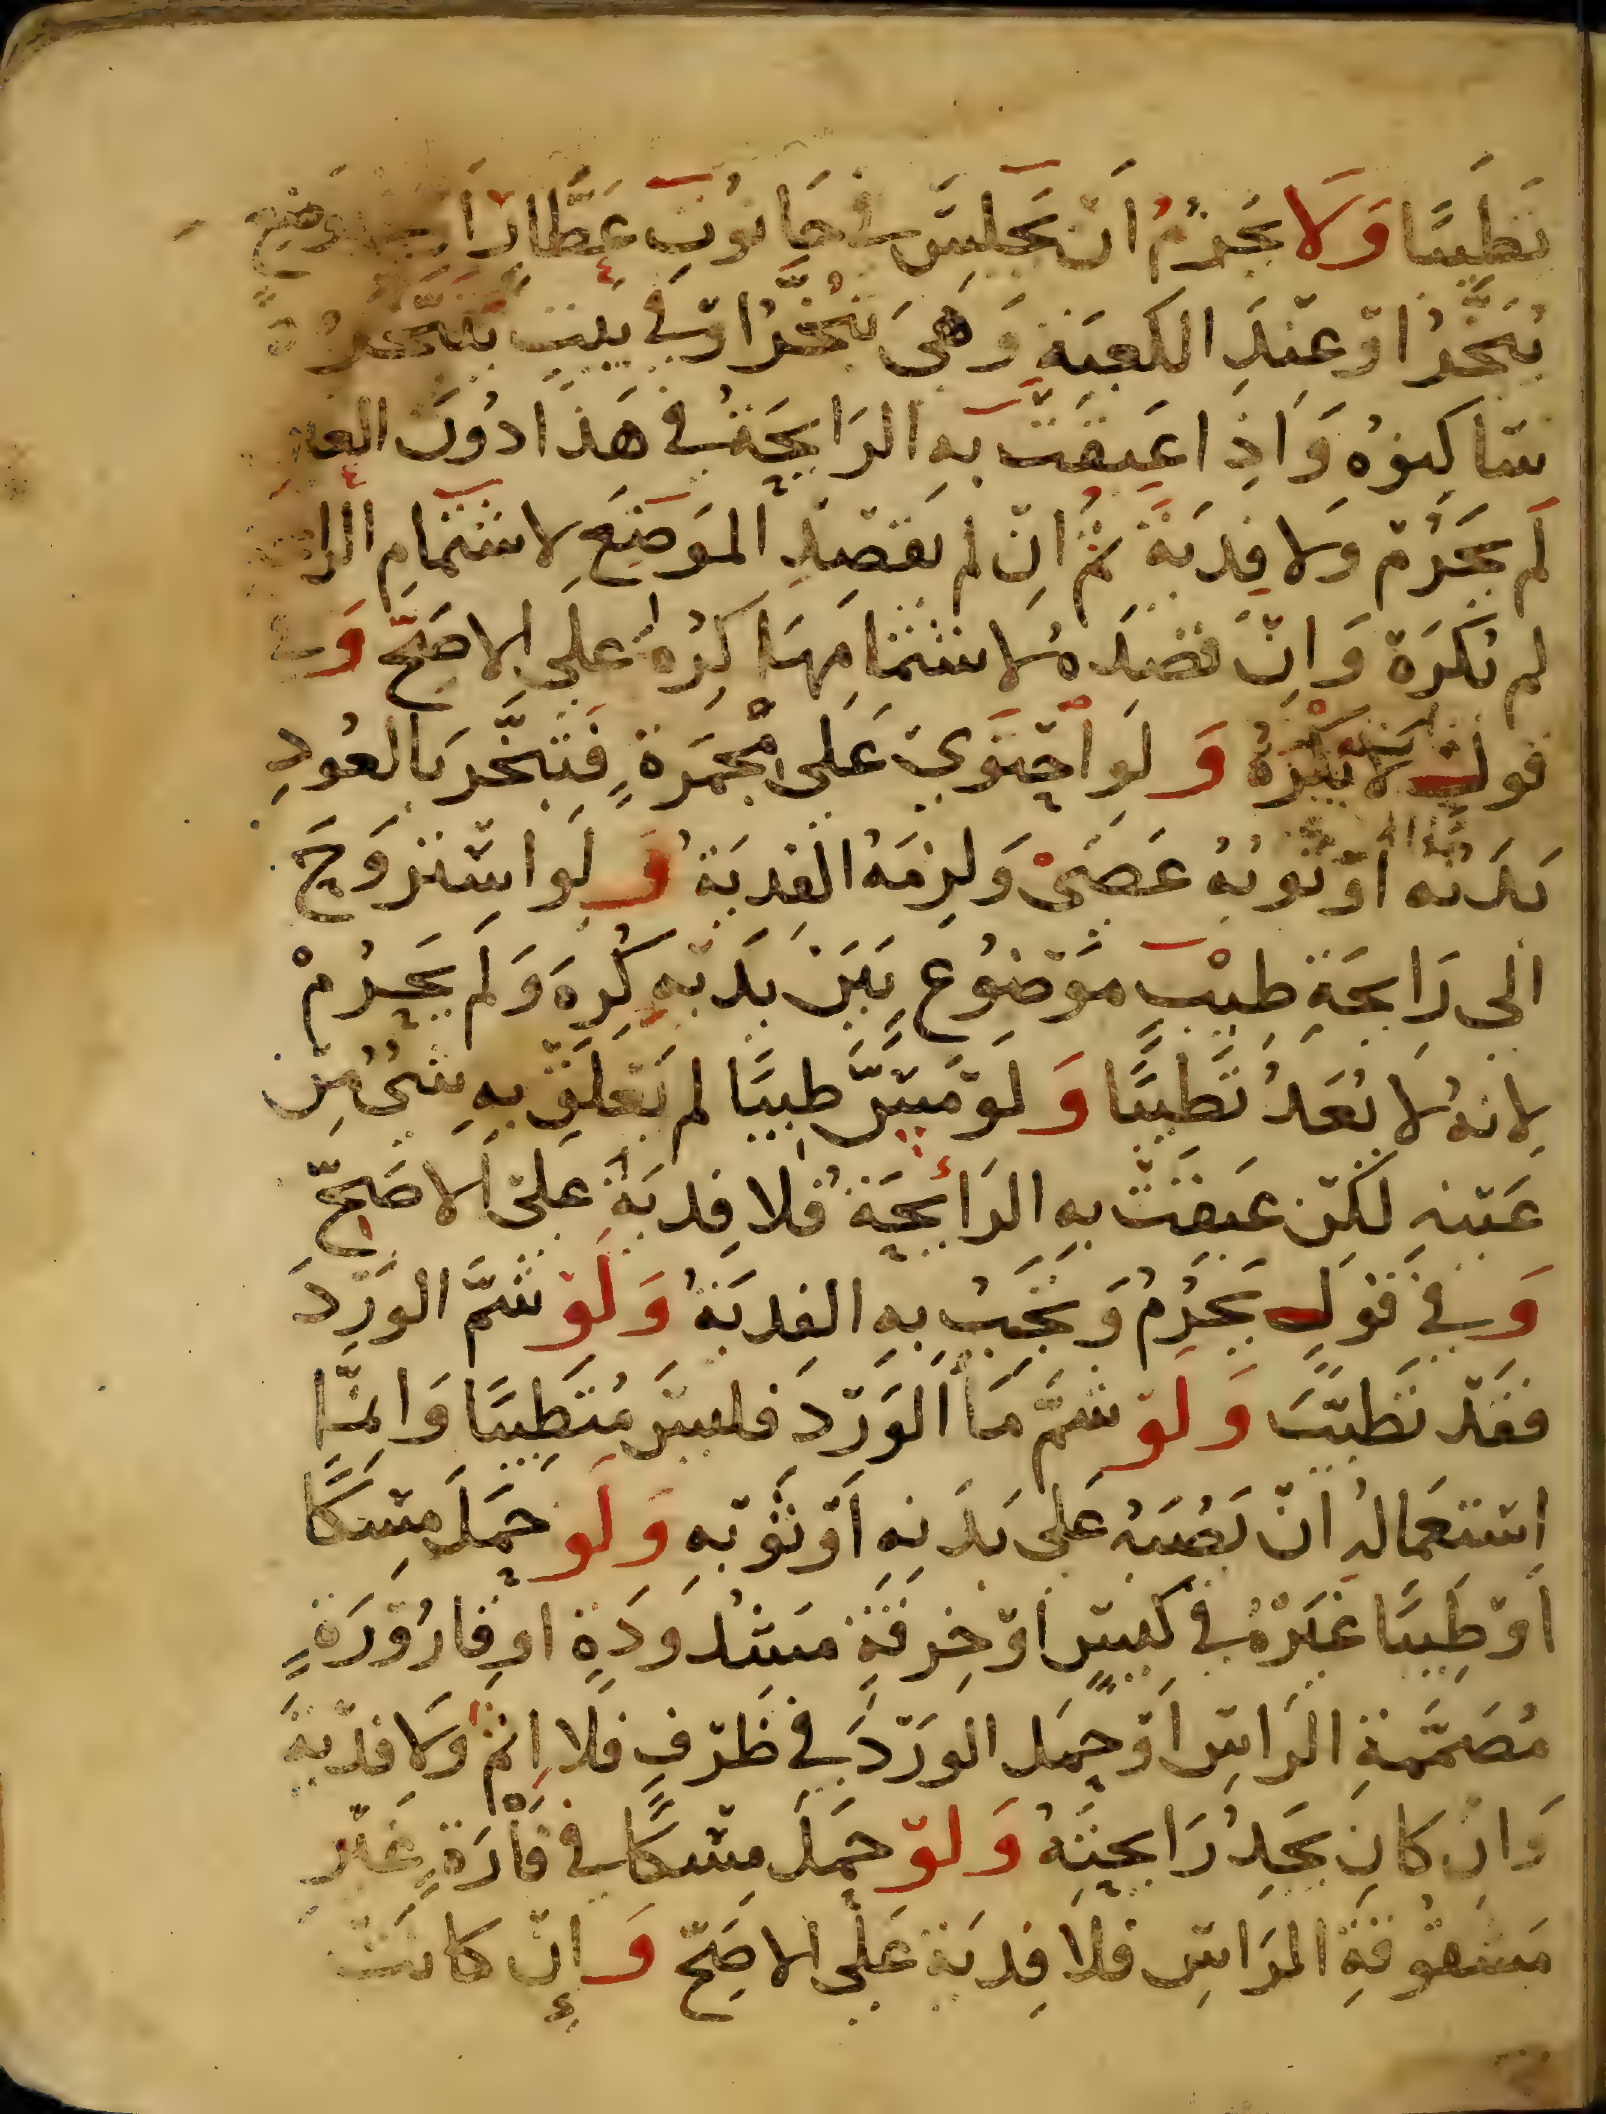 تَطَيُّبًا وَلَا يَحْرُمُ اَنْ يَجْلِسَ في حَانُوتِ عَطَّارٍ اَوْ موضِعٍ
يُبَخَّرُ اَوْ عِنْدَ الكَعْبَةِ وَهِيَ تُبَخَّرُ اَوْ في بَيْتٍ يَتَبَخَّرُ
سَاكِنُوهُ وَاِذَا عَبِقَتْ بِهِ الرَايِحَةُ في هَذَا دُونَ العين
لَمْ يَحْرُمْ وَلا فِدْيَةَ ثُمَّ اِنْ لم يَقْصِدِ المَوضِعَ لاشتمامِ الرايـ
لم يُكْرَهْ وَاِنْ قَصَدَهُ لِاشْتِمَامِهَا كُرِهَ عَلَى الاصَحِّ وَفي
قَولٍ لَا يُكْرَهُ وَلَو احْتَوَى عَلَى مِجْمَرَةٍ فَتَبَخَّرَ بِالعُودِ
بَدَنُهُ اَوْ ثَوبُهُ عَصَىْ وَلَزِمَهُ الفِدْيَةُ وَلَو اسْتَروَحَ
اِلى رَايحَةِ طِيْبٍ مَوْضُوعٍ بَيْنَ يَدَيْهِ كُرِهَ وَلَم يَحْرُمْ
لِانهُ لَا يُعَدُّ تَطَيُّبًا وَلَوْ مَسَّ طِيبًا لم يَعْلَقْ بِهِ شَيءٌ مِنْ
عَيْنِهِ لَكِنْ عَبِقَتْ بِهِ الرَائِحَةُ فَلا فِديَةَ عَلَى الاصَحِّ
وَفي قَوْلٍ يَحْرُمُ وَتَجِبُ بِهِ الفِدْيَةُ وَلَوْ شَمَّ الوَرْدَ
فَقَدْ تَطَيَّبَ وَلَوْ شَمَّ مَاَ الوَرْدِ فَلَيسَ مُتَطَيِّبًا وَاِنَّمَا
اِسْتِعمَالُهُ اَنْ يَصُبَّهُ عَلَى بَدَنِهِ اَوْ ثَوْبِهِ وَلَو حَمَلَ مِسْكًا
اَوْ طِيبًا غَيْرَهُ في كِيسٍ اَوْ خِرقَةٍ مَشْدُودَةٍ اَو قَارُوْرَةٍ
مُصَمَّمَةِ الرَاسِ اَوْ حَمَل الورْدَ في ظَرْفٍ فَلا اِثْمَ وَلَا فِدْيَةَ
وَاِنْ كَانَ يَجِدُ رَايحَتَهُ وَلَوْ حَمَلَ مِسْكًا في فَأْرَةٍ غَيْرِ
مَشقُوقَةِ الرَاسِ فَلا فِدْيَةَ عَلَى الاصَحِّ وَإِنْ كَانَتْ